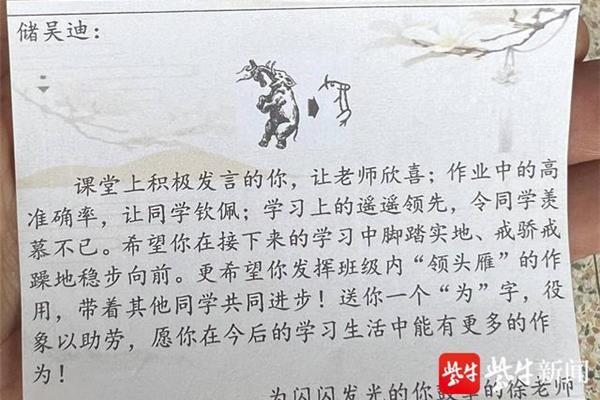 储吴迪：
课堂上积极发言的你，让老师欣喜；作业中的高
准确率，让同学钦佩；学习上的遥遥领先，令同学羡
慕不已。希望你在接下来的学习中脚踏实地、戒骄戒
躁地稳步向前。更希望你发挥班级内“领头雁”的作
用，带着其他同学共同进步！送你一个“为”字，役
象以助劳，愿你在今后的学习生活中能有更多的作
为！
为闪闪发光的你鼓掌的徐老师
紫牛 紫牛新闻